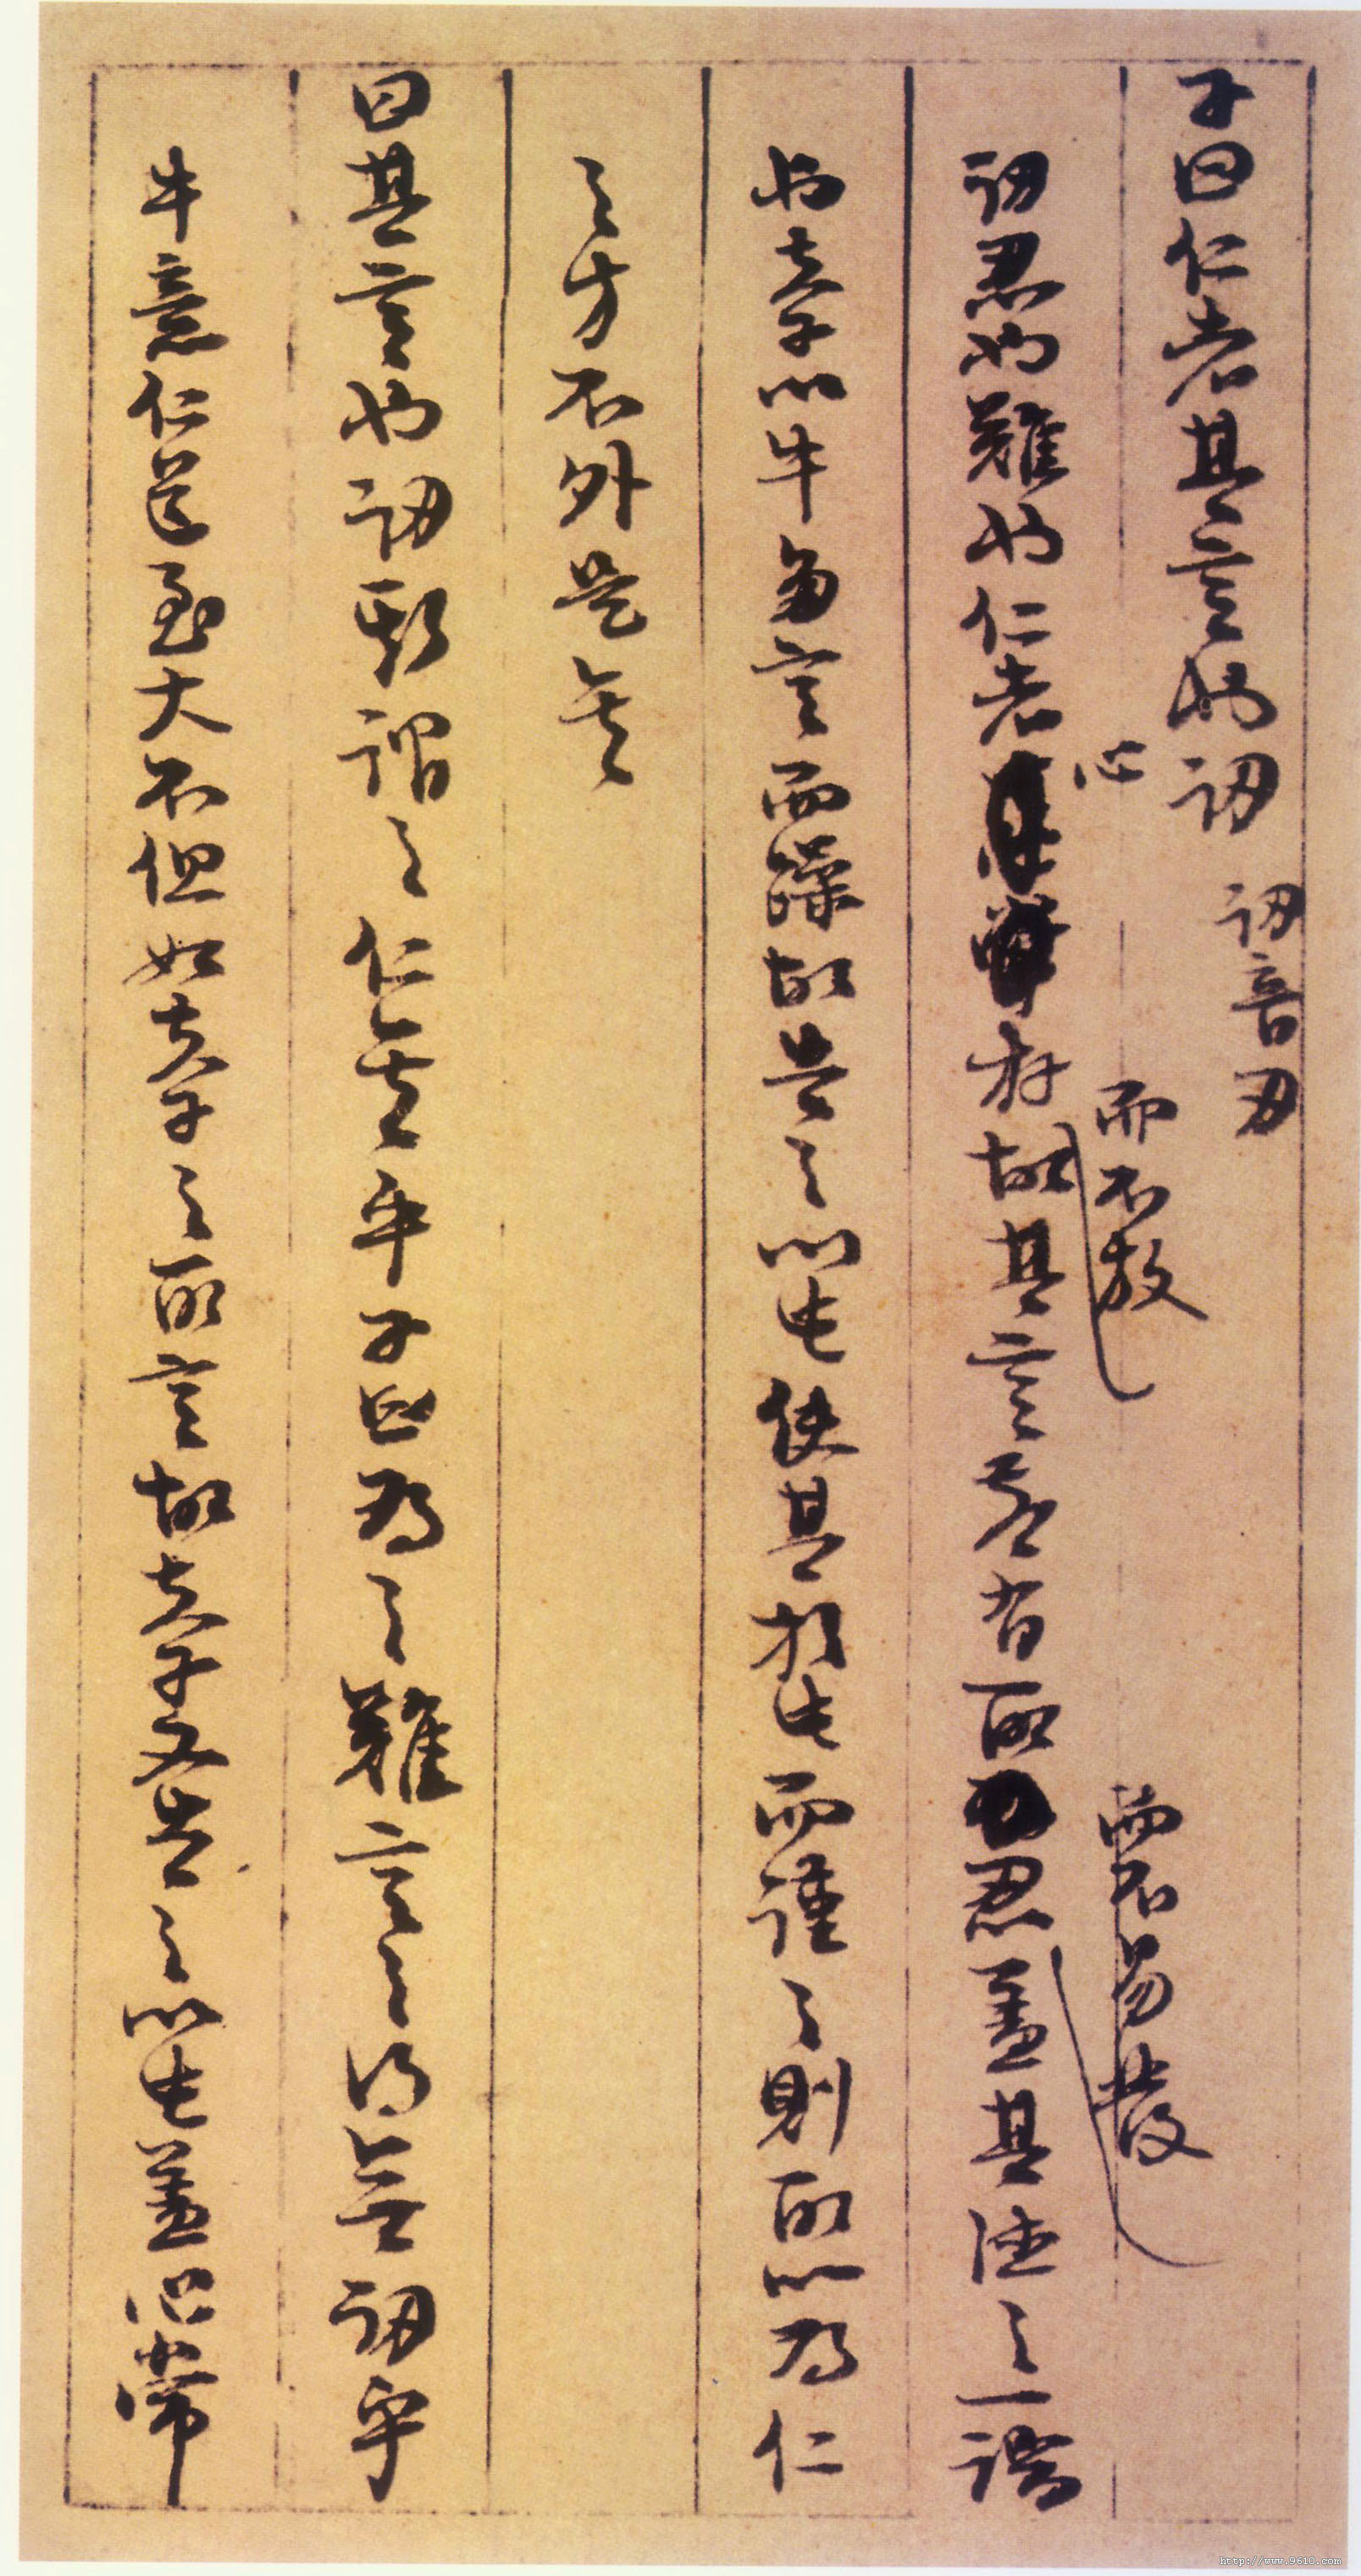 子曰仁者其言也訒 訒音刃
心 而不放 而不易發
訒忍也難也仁者存故其言若有所忍蓋其德之一端
也夫子以牛多言而躁故告之以此使其於此而謹之則所以為仁
之方不外是矣
曰其言也訒斯謂之仁矣乎子曰為之難言之得無訒乎
牛意仁道至大不但如夫子之所言故夫子又告之以此蓋心常
http://www.9610.com